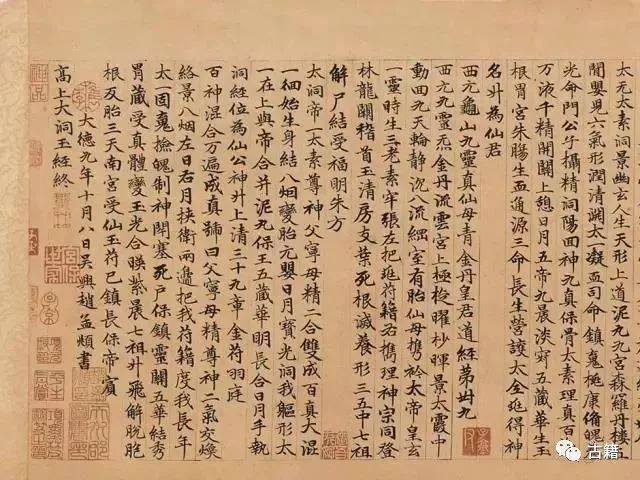 太元太素洞景幽人生天形上道泥丸九宮森羅丹樓上
閒嬰兒六氣形潤清淵太一凝血司命鎮鬼梃康脩魄
光命門公子攝精洞陽回神九真保骨太素理真百
万液千精開闢上憩日月五帝九晨淡寂五藏華生玉
根胃宮朱腸生血通源三命長生營護太全延得神
名升為仙君
西元龜山九靈真仙母青金丹皇君道經苐卅九
西元九靈炁金丹流雲宮上極曜杪暉景太霞中
動回九天輪静沉八流細室有胎仙母攜衿太帝皇玄
一靈時生三老素牢張左把延苻籍右攜理神宗同登
林龍闕稽首玉清房支葉死根滅養形三五中七祖
解尸結受福明朱方
太洞帝一太素尊神父寧母精二合雙成百真大混
一徊始生身結八烟變胎元嬰日月寶光洞我軀形太
一在上與帝合并泥九保王五藏華明長合日月手執
洞經位為仙公神升上清三十九章金符羽庭
百神混合万遍成真號曰父寧母精尊神二氣交煥
絡景八烟左日右月挾衛兩邊把我苻籍度我長年
太一固鬼檢魄制神閉塞死戶保鎮靈關五華結秀
胃藏受真體變玉光合映紫晨七祖升飛解脫胞
根反胎三天南宮受仙玉苻已鎮長保帝賓
大德九年十月八日吴興趙孟頫書
高上大洞玉經終
古籍